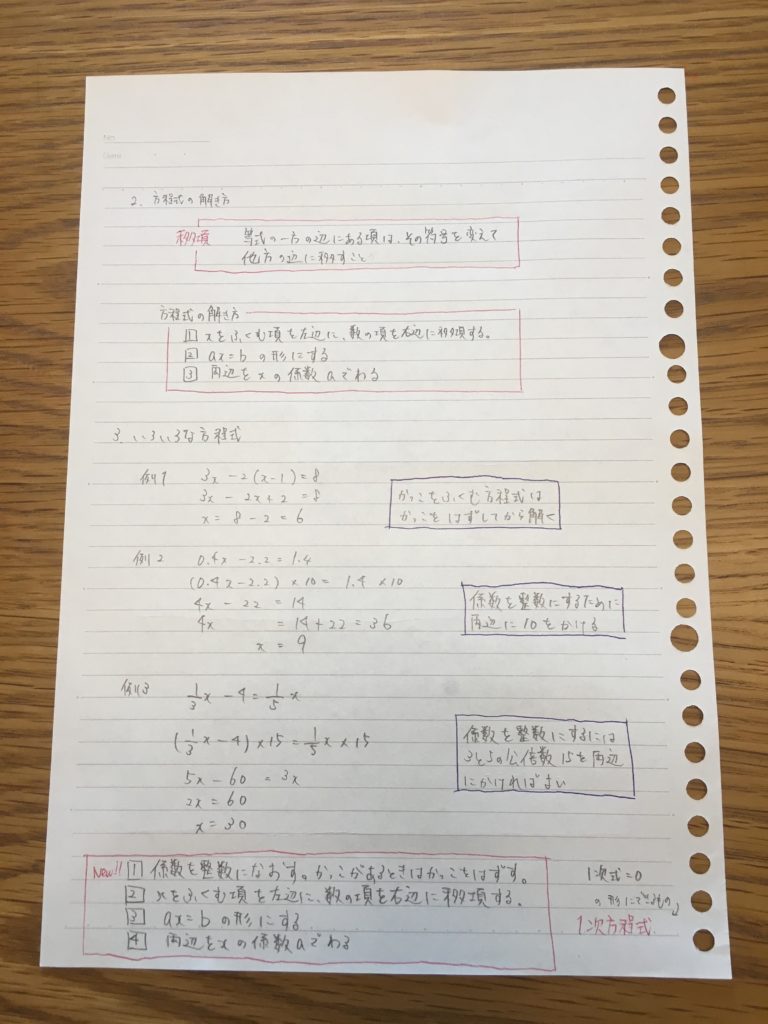 No.
Date
2. 方程式の解き方
移項 等式の一方の辺にある項は、その符号を変えて
他方の辺に移すこと
方程式の解き方
1 xをふくむ項を左辺に、数の項を右辺に移項する。
2 ax=b の形にする
3 両辺をxの係数aでわる
3. いろいろな方程式
例1 3x-2(x-1)=8
3x-2x+2=8
x=8-2=6
かっこをふくむ方程式は
かっこをはずしてから解く
例2 0.4x-2.2=1.4
(0.4x-2.2)×10=1.4×10
4x-22=14
4x=14+22=36
x=9
係数を整数にするために
両辺に10をかける
例3 1/3x-4=1/5x
(1/3x-4)×15=1/5x×15
5x-60=3x
2x=60
x=30
係数を整数にするには
3と5の公倍数15を両辺
にかければよい
New!! 1 係数を整数になおす。かっこがあるときはかっこをはずす。
2 xをふくむ項を左辺に、数の項を右辺に移項する。
3 ax=b の形にする
4 両辺をxの係数aでわる
1次式=0
の形にできるもの
1次方程式